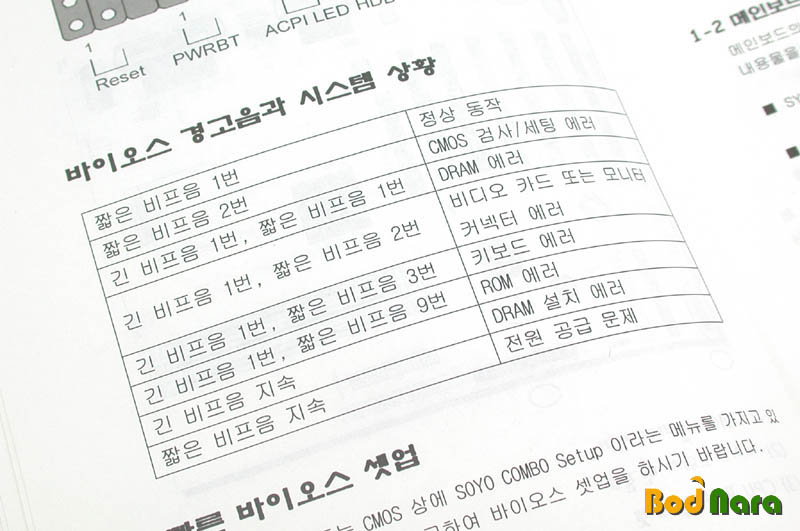 1 1
Reset PWRBT ACPI LED HDD
바이오스 경고음과 시스템 상황
짧은 비프음 1번 정상 동작
짧은 비프음 2번 CMOS 검사/세팅 에러
긴 비프음 1번, 짧은 비프음 1번 DRAM 에러
긴 비프음 1번, 짧은 비프음 2번 비디오 카드 또는 모니터
커넥터 에러
긴 비프음 1번, 짧은 비프음 3번 키보드 에러
긴 비프음 1번, 짧은 비프음 9번 ROM 에러
긴 비프음 지속 DRAM 설치 에러
짧은 비프음 지속 전원 공급 문제
빠른 바이오스 셋업
CMOS 상에 SOYO COMBO Setup 이라는 메뉴를 가지고 있
하여 바이오스 셋업을 하시기 바랍니다.
1-2 메인보드
메인보드의
내용물을
■ SY
■
Bod Nara